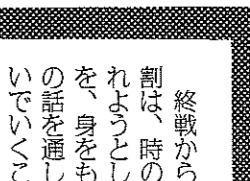 終戦から
割は、時の
れようとし
を、身をも
の話を通し
いでいくこ